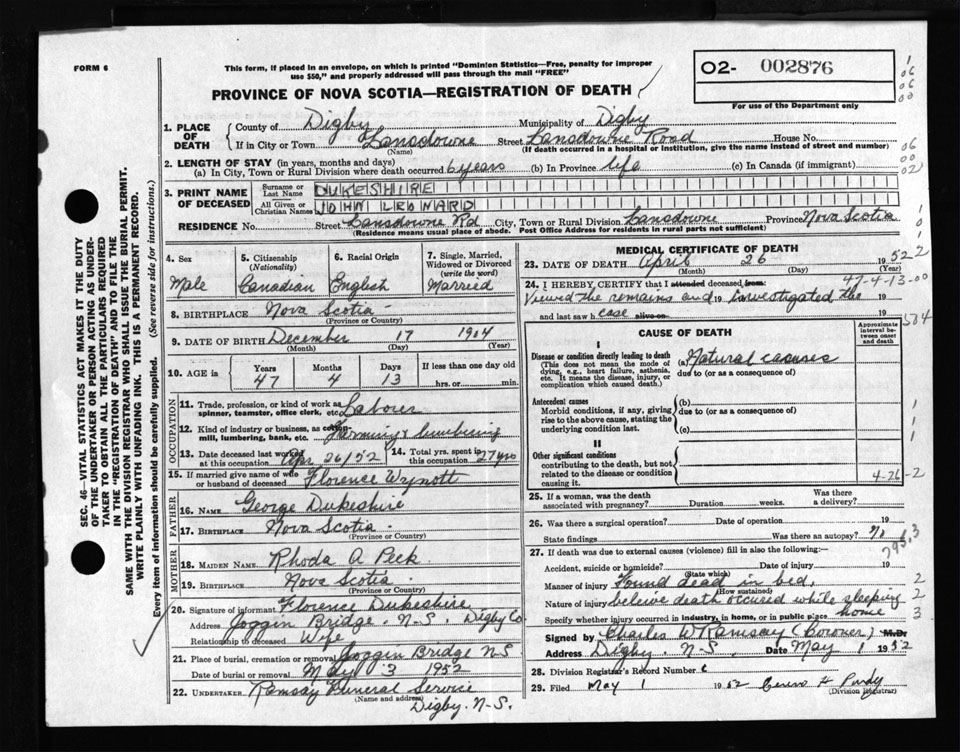 FORM 6
This form, if placed in an envelope, on which is printed "Dominion Statistics—Free, penalty for improper
use $50," and properly addressed will pass through the mail "FREE"
PROVINCE OF NOVA SCOTIA—REGISTRATION OF DEATH
02- 002876
For use of the Department only
1. PLACE OF DEATH County of Digby Municipality of Digby
If in City or Town Lansdowne Street Lansdowne Road House No.
(Name) (If death occurred in a hospital or institution, give the name instead of street and number)
2. LENGTH OF STAY (in years, months and days)
(a) In City, Town or Rural Division where death occurred 6 years (b) In Province life (c) In Canada (if immigrant)
3. PRINT NAME OF DECEASED
Surname or Last Name DUKESHIRE
All Given or Christian Names JOHN LEONARD
RESIDENCE No. Street Lansdowne Rd City, Town or Rural Division Lansdowne Province Nova Scotia
(Residence means usual place of abode. Post Office Address for residents in rural parts not sufficient)
4. Sex Male
5. Citizenship (Nationality) Canadian
6. Racial Origin English
7. Single, Married, Widowed or Divorced (write the word) Married
8. BIRTHPLACE Nova Scotia
(Province or Country)
9. DATE OF BIRTH December 17 1904
(Month) (Day) (Year)
10. AGE in Years 47 Months 4 Days 13 If less than one day old hrs. or min.
OCCUPATION
11. Trade, profession, or kind of work as spinner, teamster, office clerk, etc. Laborer
12. Kind of industry or business, as cotton mill, lumbering, bank, etc. Farming & lumbering
13. Date deceased last worked at this occupation Apr 26/52
14. Total yrs. spent in this occupation 27 yrs
15. If married give name of wife or husband of deceased Florence Wynott
FATHER
16. NAME George Dukeshire
17. BIRTHPLACE Nova Scotia
(Province or Country)
MOTHER
18. MAIDEN NAME Rhoda A Peck
19. BIRTHPLACE Nova Scotia
(Province or Country)
20. Signature of informant Florence Dukeshire
Address Joggin Bridge. N-S. Digby Co
Relationship to deceased Wife
21. Place of burial, cremation or removal Joggin Bridge N-S
Date of burial or removal May 3 1952
22. UNDERTAKER Ramsay Funeral Service
(Name and address)
Digby. N-S.
MEDICAL CERTIFICATE OF DEATH
23. DATE OF DEATH April 26 1952
(Month) (Day) (Year)
24. I HEREBY CERTIFY that I attended deceased from: 47-4-13-00
Viewed the remains and 19 investigated the 19
and last saw h case alive on 19
CAUSE OF DEATH
Approximate interval between onset and death
I
Disease or condition directly leading to death (a) Natural causes
(This does not mean the mode of dying, e.g., heart failure, asthenia, etc. It means the disease, injury, or complication which caused death.)
due to (or as a consequence of)
Antecedent causes (b)
Morbid conditions, if any, giving rise to the above cause, stating the underlying condition last.
due to (or as a consequence of)
(c)
II
Other significant conditions
contributing to the death, but not related to the disease or condition causing it.
4-26-2
25. If a woman, was the death associated with pregnancy? Duration weeks. Was there a delivery?
26. Was there a surgical operation? Date of operation 19
State findings Was there an autopsy? No
27. If death was due to external causes (violence) fill in also the following: 795.3
Accident, suicide or homicide? Date of injury 19
(State which)
Manner of injury Found dead in bed.
(How sustained)
Nature of injury beleive death occured while sleeping
Specify whether injury occurred in industry, in home, or in public place home
Signed by Charles W Ramsay (Coroner) M.D.
Address Digby N-S. Date May 1 1952
28. Division Registrar's Record Number 6
29. Filed May 1 1952
(Division Registrar)
SEC. 46—VITAL STATISTICS ACT MAKES IT THE DUTY
OF THE UNDERTAKER OR PERSON ACTING AS UNDER-
TAKER TO OBTAIN ALL THE PARTICULARS REQUIRED
IN THE "REGISTRATION OF DEATH" AND TO FILE THE
SAME WITH THE DIVISION REGISTRAR WHO SHALL ISSUE THE BURIAL PERMIT.
WRITE PLAINLY WITH UNFADING INK. THIS IS A PERMANENT RECORD.
Every item of information should be carefully supplied. (See reverse side for instructions.)